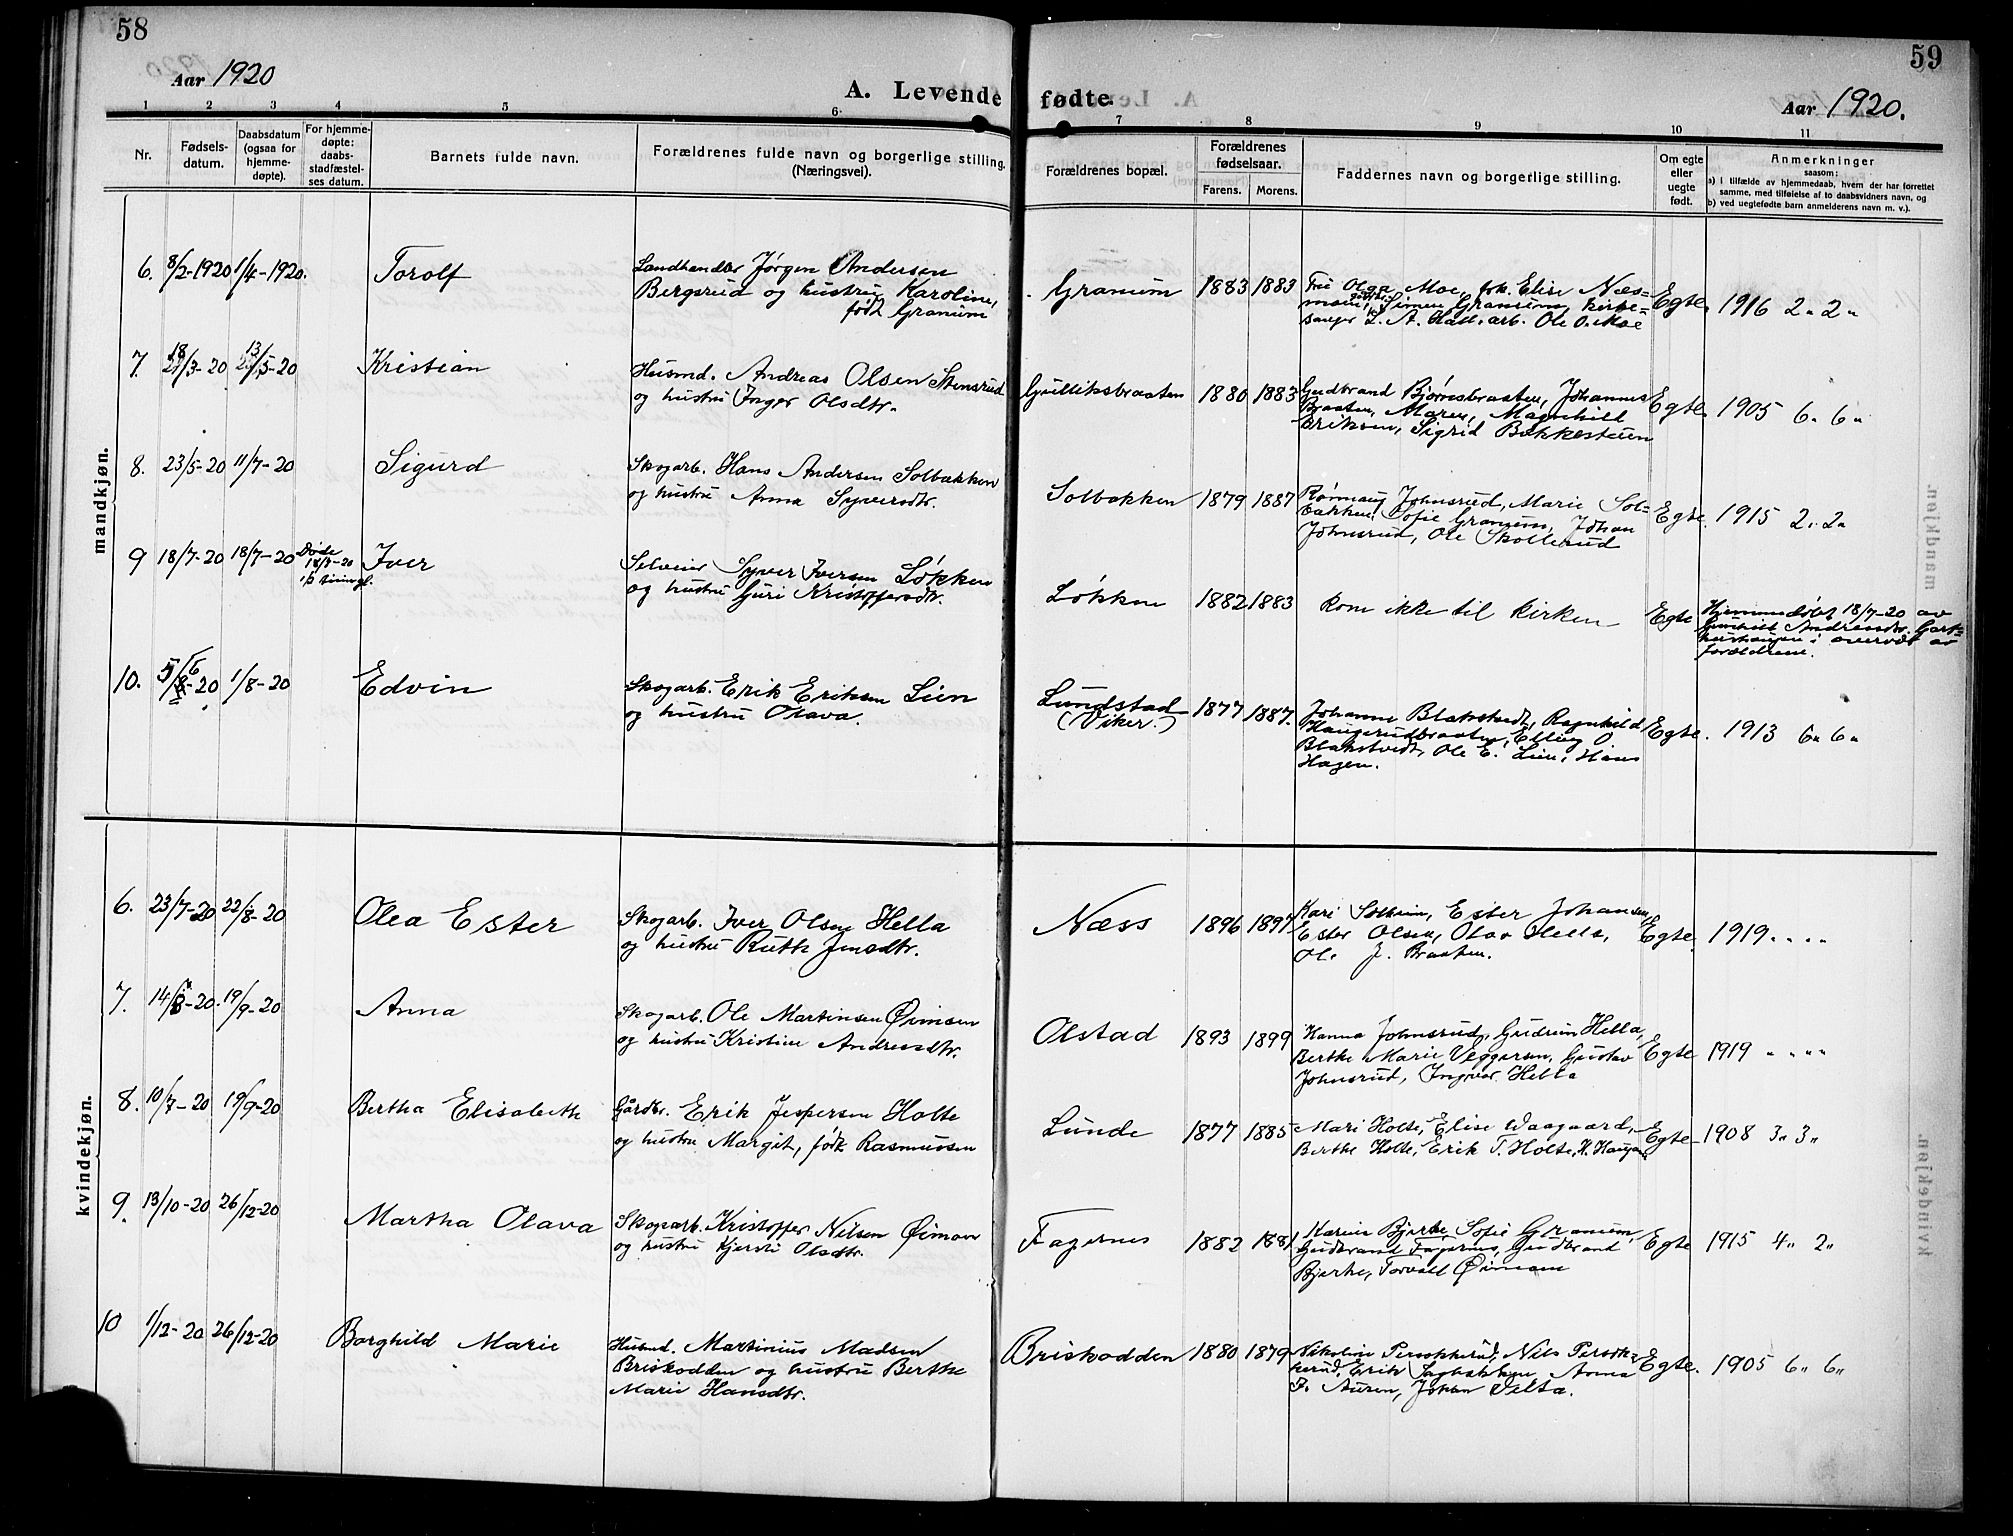 58
59
Aar 1920
A. Levende fødte.
Aar 1920.
1 2 3 4 5 6 7 8 9 10 11
Nr.
Fødsels-
datum.
Daabsdatum
(ogsaa for
hjemme-
døpte).
For hjemme-
døpte:
daabs-
stadfæstel-
ses datum.
Barnets fulde navn.
Forældrenes fulde navn og borgerlige stilling.
(Næringsvei).
Forældrenes bopæl.
Forældrenes
fødselsaar.
Farens. Morens.
Faddernes navn og borgerlige stilling.
Om egte
eller
uegte
født.
Anmerkninger
saasom:
a) i tilfælde av hjemmedaab, hvem der har forrettet
samme, med tilføielse af to daabsvidners navn, og
b) ved uegtefødte barn anmelderens navn m. v.).
mandkjøn.
6. 8/2-1920 1/4-1920. Torolf
Landhandler Jørgen Andersen
Bergsrud og hustru Karoline,
født Granum
Granum 1883 1883
Fru Olga Moe, frk. Elise Næs-
moen, Simen Granum, kirke-
sanger L. A. Hall, arb. Ole O. Moe
Egte. 1916 2 „ 2 „
7. 18/3-20 13/5-20 Kristian
Husmd. Andreas Olsen Stensrud
og hustru Inger Olsdtr.
Gulliksbraaten 1880 1883
Gudbrand Bjørnsbraaten, Johannes
Braaten, Maren, Magnhild
Eriksen, Sigrid Bakkesteien
Egte. 1905 6 „ 6 „
8. 23/5-20 11/7-20 Sigurd
Skogarb. Hans Andersen Solbakken
og hustru Anna Syversdtr.
Solbakken 1879 1887
Rønnaug Johnsrud, Marie Sol-
bakken, Sofie Granum, Johan
Johnsrud, Ole Skollerud
Egte. 1915 2 „ 2 „
9 18/7-20 18/7-20 Døde
18/7-20
Iver
Selveier Syver Iversen Løkken
og hustru Guri Kristoffersdtr.
Løkken 1882 1883
kom ikke til kirken
Egte
Hjemmedøbt 18/7-20 av
Gunhild Andreasdtr.
i overvær av
forældrene.
10. 5/6-20 1/8-20 Edvin
Skogarb. Erik Eriksen Lien
og hustru Olava.
Lundstad
(Viker.)
1877 1887.
Johanne Blakstvedt, Ragnhild
Haugerudbraaten, Elling O
Blakstvedt, Ole E. Lien, Hans
Hagen.
Egte. 1913 6 „ 6 „
kvindekjøn.
6. 23/7-20 22/8-20 Olea Ester
Skogarb. Iver Olsen Hella
og hustru Ruth Jensdtr.
Næss 1896 1897
Kari Solheim, Ester Johansen,
Ester Olsen, Olav Hella,
Ole J. Braaten.
Egte. 1919 „ „ „ „
7. 14/8-20. 19/9-20 Anna
Skogarb. Ole Martinsen Øimoen
og hustru Kristine Andreasdtr.
Olstad 1893 1899
Hanna Johnsrud, Gudrun Hella,
Berthe Marie Veggersen, Gustav
Johnsrud, Ingvar Hella
Egte 1919 „ „ „ „
8. 10/7-20 19/9-20 Bertha Elisabeth
Gårdbr. Erik Jespersen Holte
og hustru Margit, født Rasmussen
Lunde 1877 1885
Mari Holte, Elise Waagaard,
Berthe Holte, Erik T. Holte, K. Haugen
Egte 1908 3 „ 3 „
9. 13/10-20 26/12-20 Martha Olava
Skogarb. Kristoffer Nilsen Øimoen
og hustru Kjersti Olsdtr.
Fagernes 1882 1881
Karen Bjerke, Sofie Granum,
Gudbrand Fagernes, Gudbrand
Bjerke, Torvald Øimoen
Egte 1915 4 „ 2 „
10 1/12-20 26/12-20 Borghild Marie
Husmd. Martinius Madsen
Briskodden og hustru Berthe
Marie Hansdtr.
Briskodden 1880 1879
Nikoline Persokkerud, Nils Persok-
kerud, Erik Sagbakken, Anna
F. Auren, Johan Velta.
Egte. 1905 6 „ 6 „